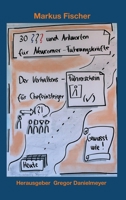 Markus Fischer
30 ??? und Antworten
für Newcomer-Führungskräfte
Der Verhaltens-
Führerschein
für Chefeinsteiger
Gewusst
wie!
Heute
Herausgeber Gregor Danielmeyer